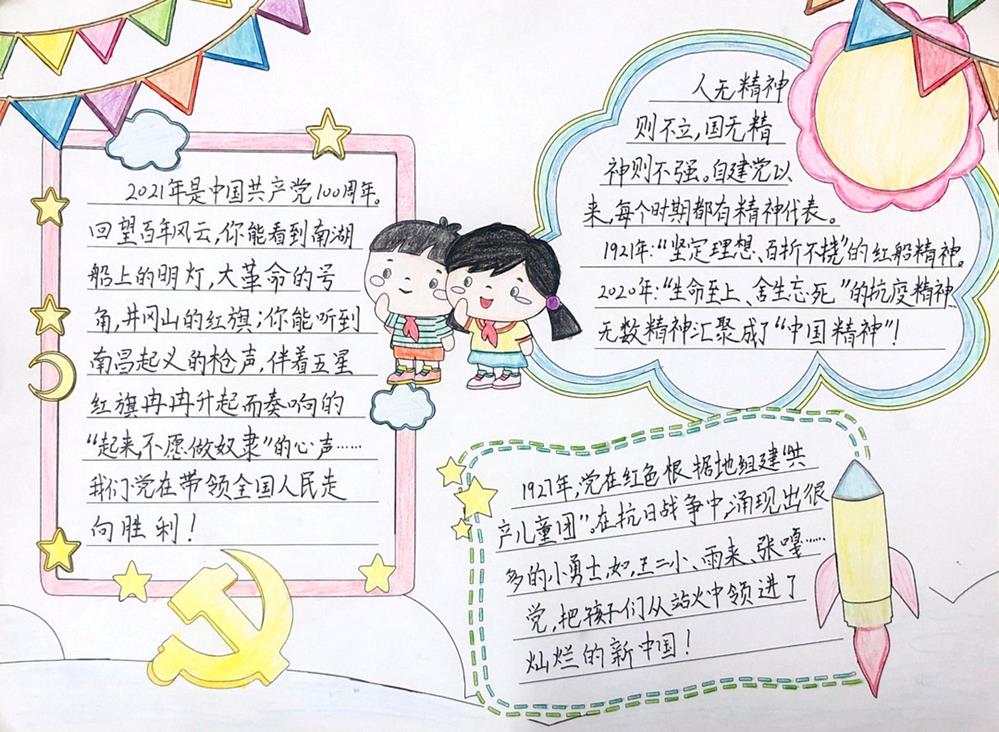 2021年是中国共产党100周年。
回望百年风云,你能看到南湖
船上的明灯,大革命的号
角,井冈山的红旗;你能听到
南昌起义的枪声,伴着五星
红旗冉冉升起而奏响的
“起来,不愿做奴隶”的心声……
我们党在带领全国人民走
向胜利!
人无精神
则不立,国无精
神则不强。自建党以
来,每个时期都有精神代表。
1921年:“坚定理想、百折不挠”的红船精神。
2020年:“生命至上、舍生忘死”的抗疫精神
无数精神汇聚成了“中国精神”!
1927年,党在红色根据地组建“共
产儿童团”。在抗日战争中,涌现出很
多的小勇士,如,王二小、雨来、张嘎……
党,把孩子们从战火中领进了
灿烂的新中国!